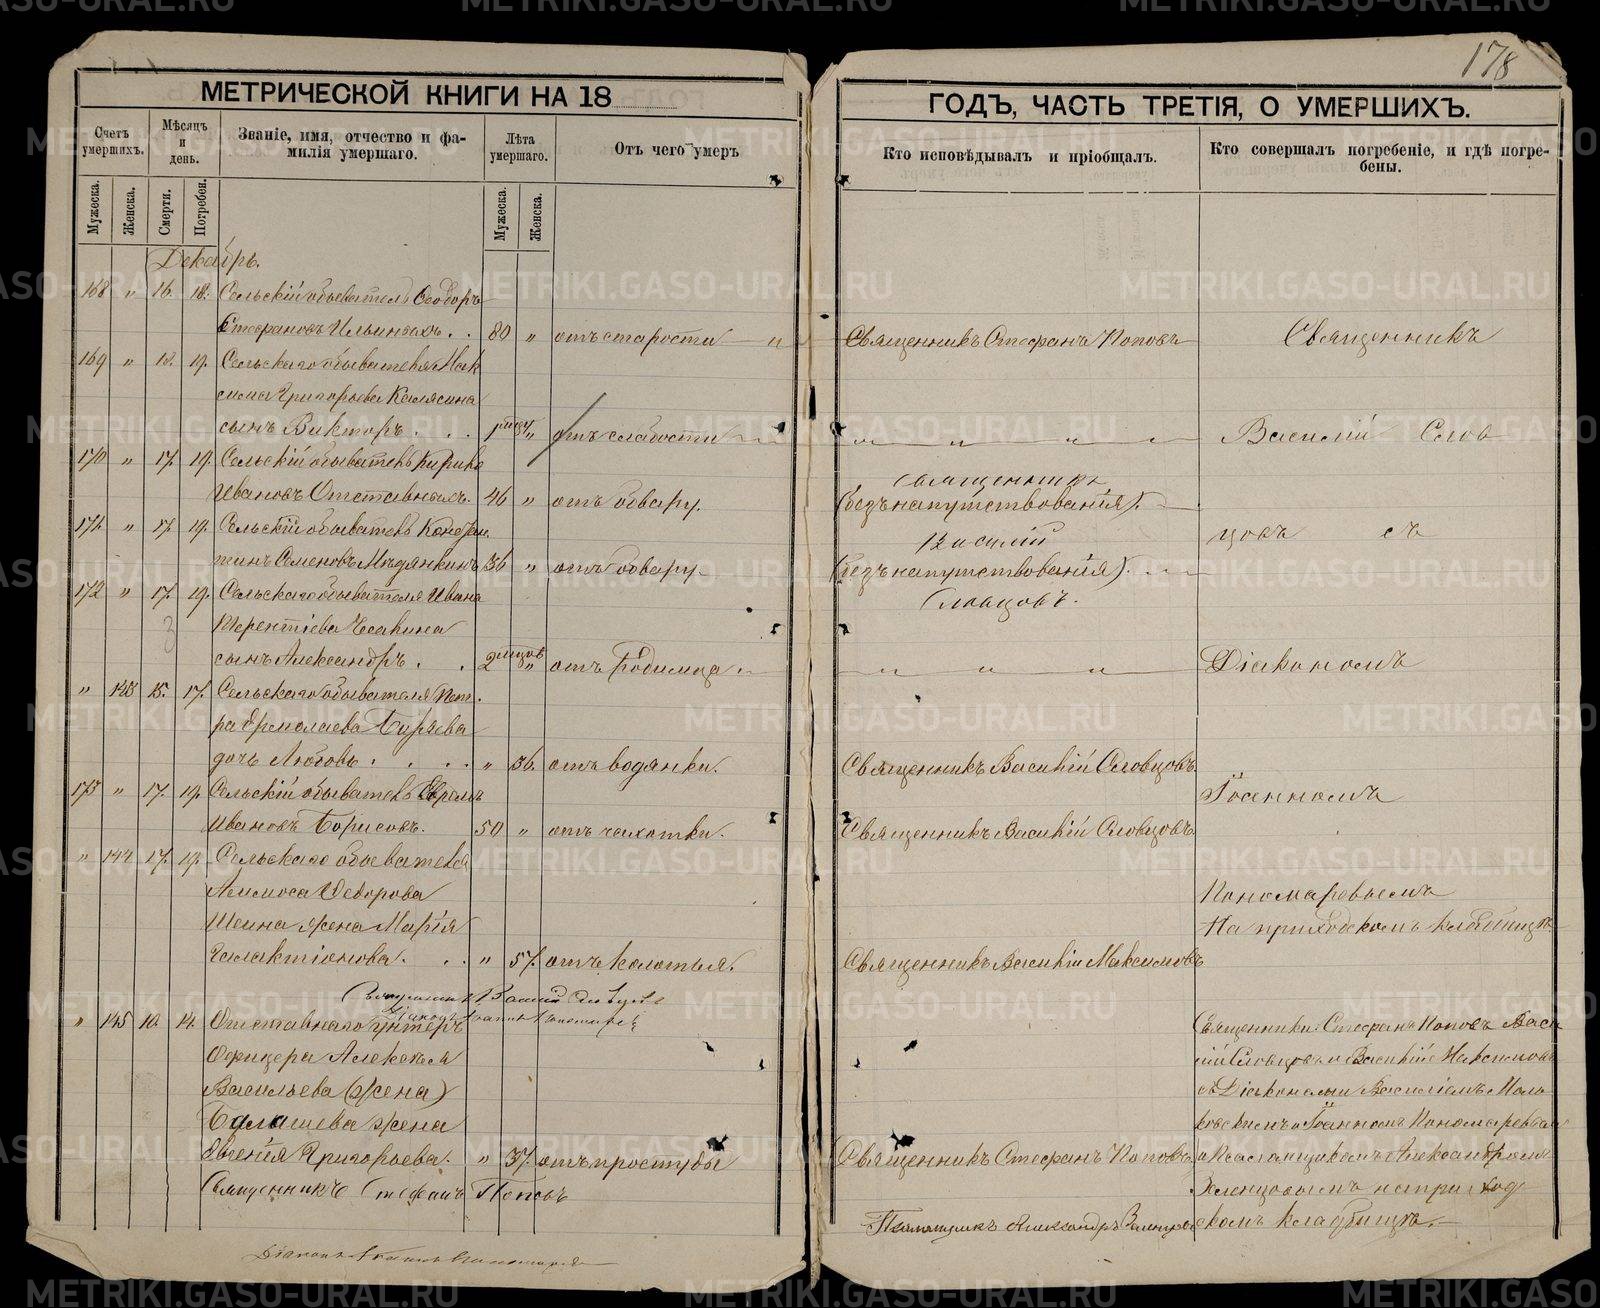 178
МЕТРИЧЕСКОЙ КНИГИ НА 18
ГОДЪ, ЧАСТЬ ТРЕТІЯ, О УМЕРШИХЪ.
Счетъ умершихъ.
Мѣсяцъ и день.
Званіе, имя, отчество и фа-
милія умершаго.
Лѣта умершаго.
Отъ чего умеръ
Кто исповѣдывалъ и пріобщалъ.
Кто совершалъ погребеніе, и гдѣ погре-
бены.
Мужеска.
Женска.
Смерти.
Погребен.
Мужеска.
Женска.
Декабрь.
168 " 16. 18. Сельскій обыватель Ѳеодоръ
Стефановъ Ильиныхъ . . 80 " отъ старости — " Священникъ Стефанъ Поповъ Священникъ
169 " 18. 19. Сельскаго обывателя Мак
сима Григорьева Калясина
сынъ Викторъ . . . " отъ слабости — " " " " Василій Слов
170 " 17. 19. Сельскій обыватель
Ивановъ Отставныхъ. 46 " отъ обвару.
Священникъ
(безъ напутствованія).
171 " 17. 19. Сельскій обыватель
тинъ Семеновъ Мѣдянкинъ 36 " отъ обвару
Василій
цовъ съ
(безъ напутствованія).
172 " 17. 19. Сельскаго обывателя Ивана
Словцовъ.
Терентіева
сынъ Александръ . . 2 мѣсяцовъ " отъ родимца " " " Діакономъ
" 143 15. 17. Сельскаго обывателя Пет-
ра Ермолаева
дочь Любовь . . . . " 36. отъ водянки. Священникъ Василій Словцовъ.
173 " 17. 19. Сельскій обыватель Ефремъ
Іоанномъ
Ивановъ Борисовъ. 50 " отъ чахотки. Священникъ Василій Словцовъ
" 144 17. 19. Сельскаго обывателя
Ѳедорова
Пономаревымъ
Шеина жена Марія
На приходскомъ кладбищѣ
Галактіонова. . . " 57. отъ колотья. Священникъ Василій Максимовъ
Священникъ Василій Словцовъ
Діаконъ Іоаннъ Пономаревъ
" 145 10. 14. Отставнаго унтеръ
Священники: Стефанъ Поповъ Васи
Офицера Алексѣя
лій Словцовъ и Василій Максимовъ
Васильева (жена)
съ Діаконами Василіемъ
Балашева жена
и Іоанномъ Пономаревымъ
Евгенія Григорьева. " 37. отъ простуды Священникъ Стефанъ Поповъ и Псаломщикомъ Александромъ
Священникъ Стефанъ Поповъ
на приход
Псаломщикъ Александръ
скомъ кладбищѣ.
Діаконъ Іоаннъ Пономаревъ
METRIKI.GASO-URAL.RU